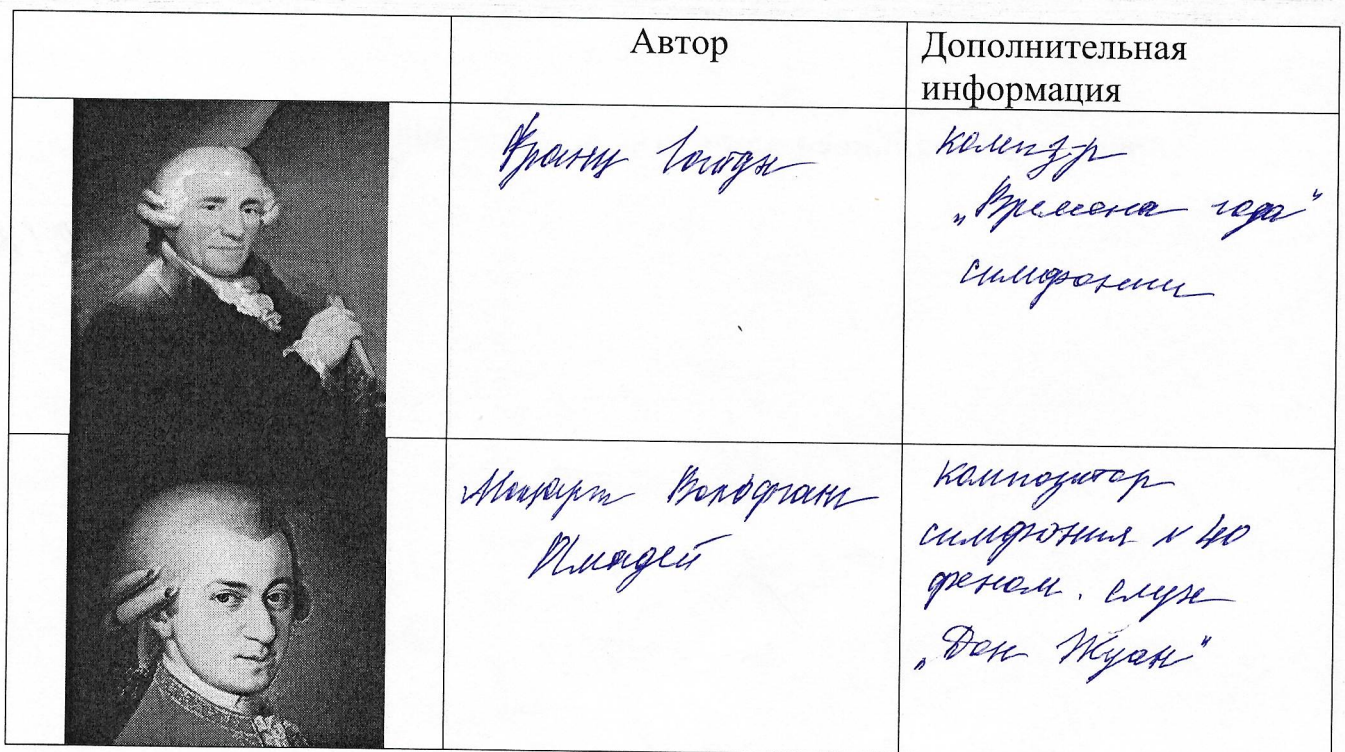 Автор
Дополнительная
информация
Франц Гайдн
"Времена года"
симфонии
Моцарт Вольфганг
Амадей
композитор
симфония № 40
феном. слух
"Дон Жуан"